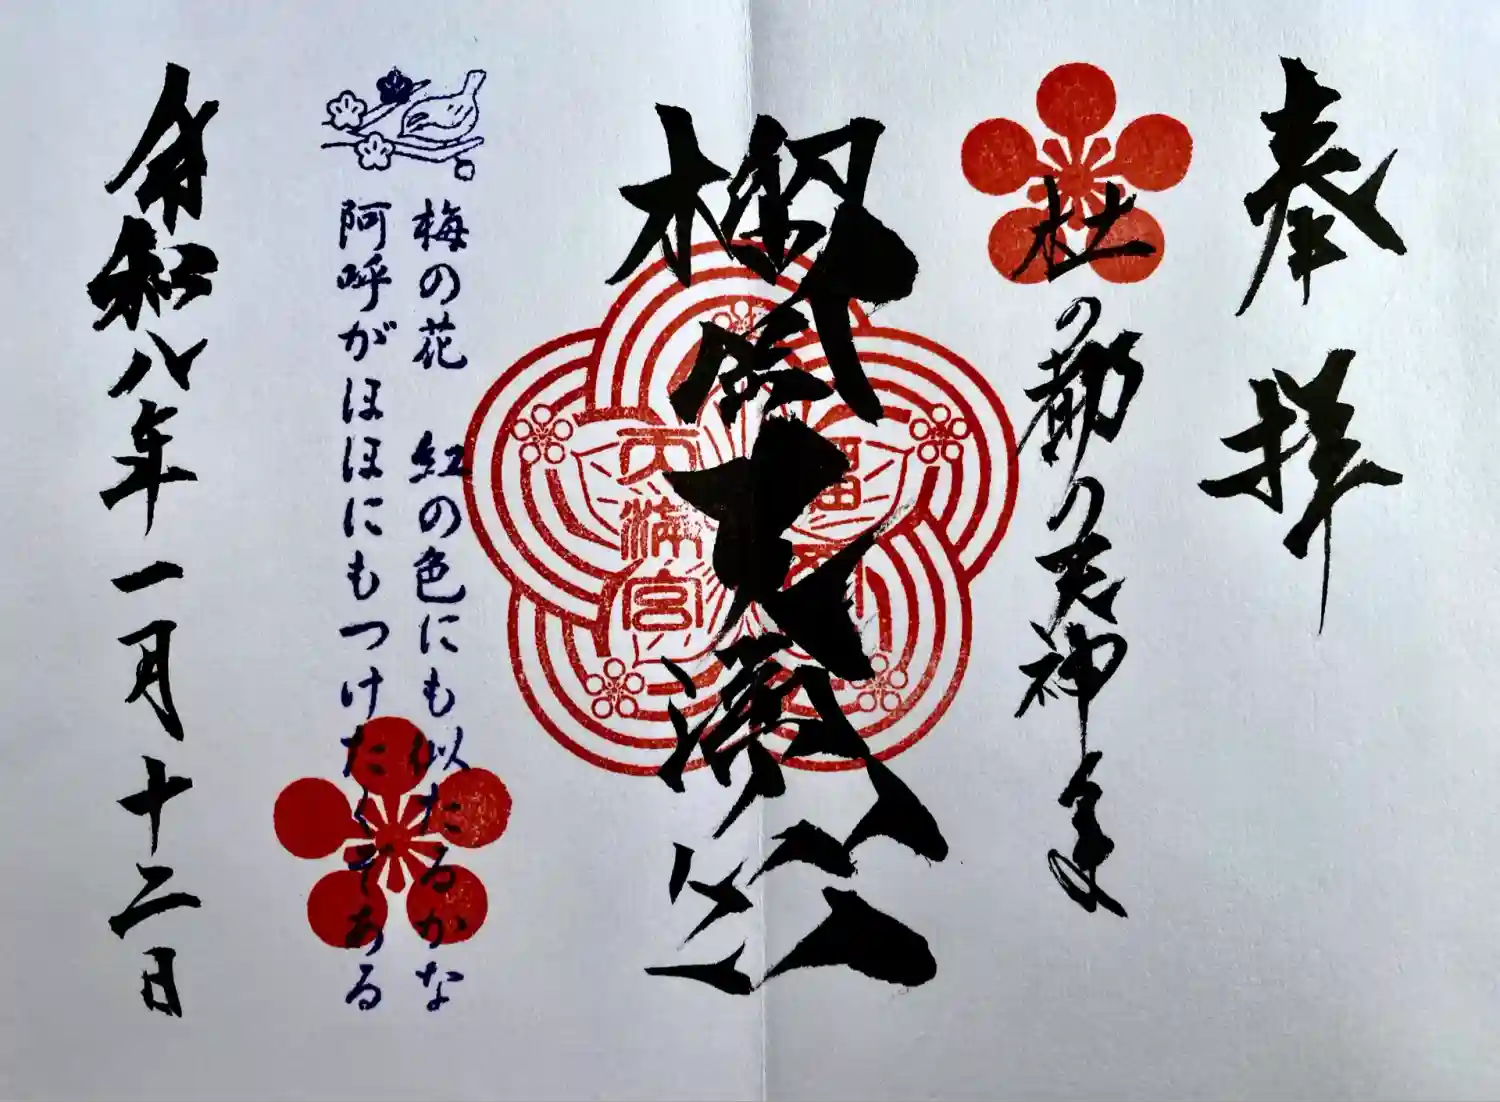 奉拝
杜の都の天神さま
榴岡天満宮
榴岡
天満宮
梅の花　紅の色にも似たるかな
阿呼がほほにもつけたくぞある
令和八年一月十二日